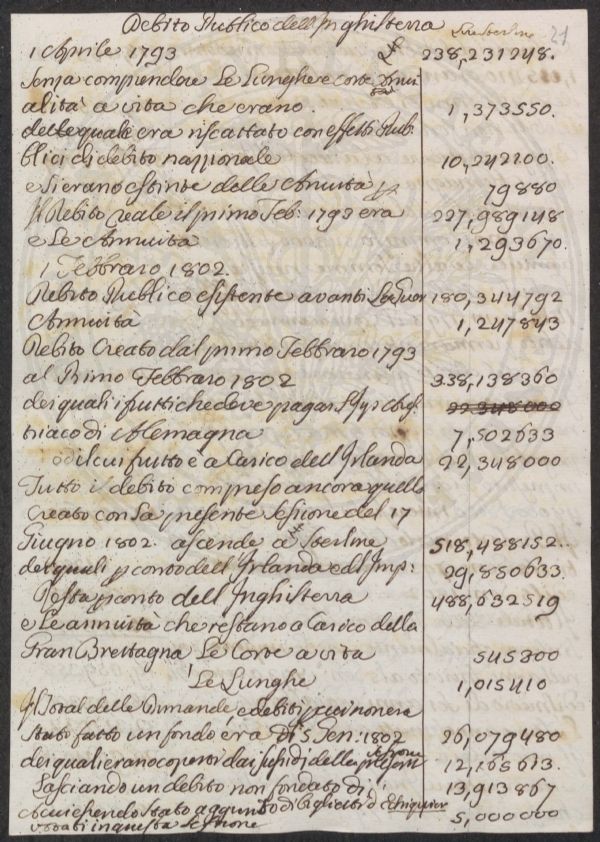 Debito Publico dell'Inghilterra Lire Sterline 21
1 Aprile 1793 238,231248.
senza comprendere Le Lunghe e Corte Annu
alità a vita che erano. 1,373550.
delle quale era riscattato con effetti Pub.
blici di debito nazzionale 10,242100.
e si erano estinte delle Annuità p 79880
Il Debito reale il primo Feb: 1793 era 227,989148
e Le Annuità 1,293670.
1 Febbraro 1802.
Debito Publico esistente avanti La Guer 180,344792
Annuità 1,247843
Debito Creato dal primo Febbraro 1793
al Primo Febbraro 1802 338,138360
dei quali i frutti che deve pagar l'Imp
triaco di Alemagna 7,502633
di cui frutto è a Carico dell'Irlanda 22,348000
Tutto il debito compreso ancora quello
Creato con La presente sessione del 17
Giugno 1802. ascende a Sterline 518,488152.
dei quali p conto dell'Irlanda e dl Imp: 29,850633.
Resta p conto dell'Inghilterra 488,632519
e Le annuità che restano a Carico della
Gran Brettagna Le Corte a vita 545300
Le Lunghe 1,015410
Il Total delle Dimande, e debiti p cui non era
stato fatto un fondo era di 5 Gen: 1802 26,079480
dei quali erano coperti dai sussidj della presente sessione 12,165613.
Lasciando un debito non fondato di 13,913867
Avendo stato aggiunto di biglietti d'Echiquier 5,000000
votati in questa sessione